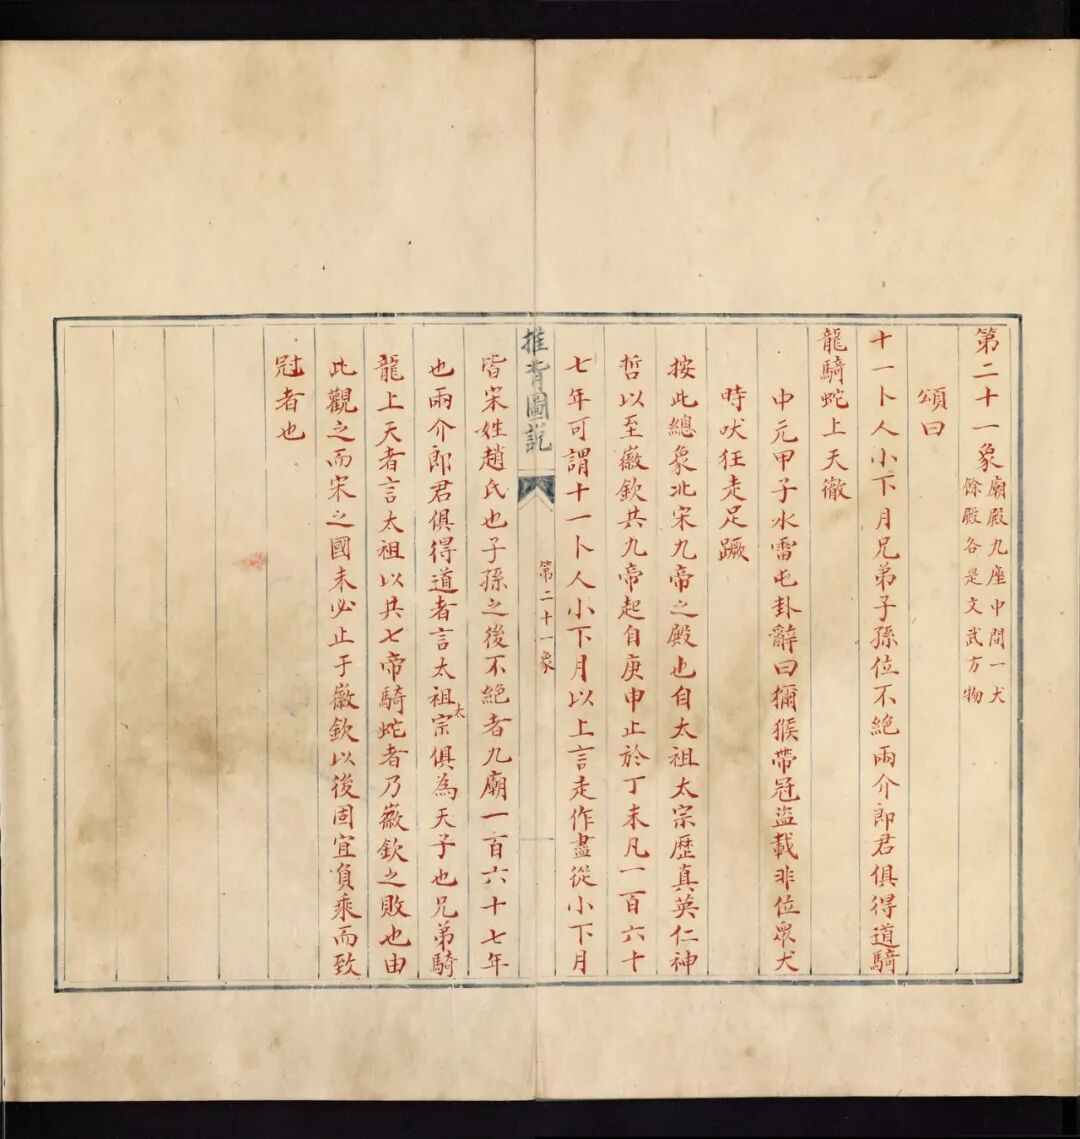 第二十一象
廟殿九座中間一犬
餘殿各是文武方物
頌曰
十一卜人小下月兄弟子孫位不絕兩介郎君俱得道騎
龍騎蛇上天徹
中元甲子水雷屯卦辭曰獼猴帶冠盜載非位眾犬
時吠狂走足蹶
按此總象北宋九帝之殿也自太祖太宗歷真英仁神
哲以至徽欽共九帝起自庚申止於丁未凡一百六十
七年可謂十一卜人小下月以上言走作盡從小下月
推背圖說
第二十一象
皆宋姓趙氏也子孫之後不絕者九廟一百六十七年
也兩介郎君俱得道者言太祖太宗俱為天子也兄弟騎
龍上天者言太祖以共七帝騎蛇者乃徽欽之敗也由
此觀之而宋之國未必止于徽欽以後固宜負乘而致
冠者也